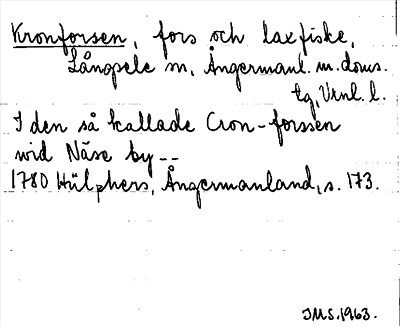 Kronforsen, fors och laxfiske,
Långsele sn, Ångermanl. m. doms.
tg, Vrnl. l.
I den så kallade Cron-forssen
wid Näse by--
1780 Hülphers, Ångermanland, s. 173.
JMS. 1963.